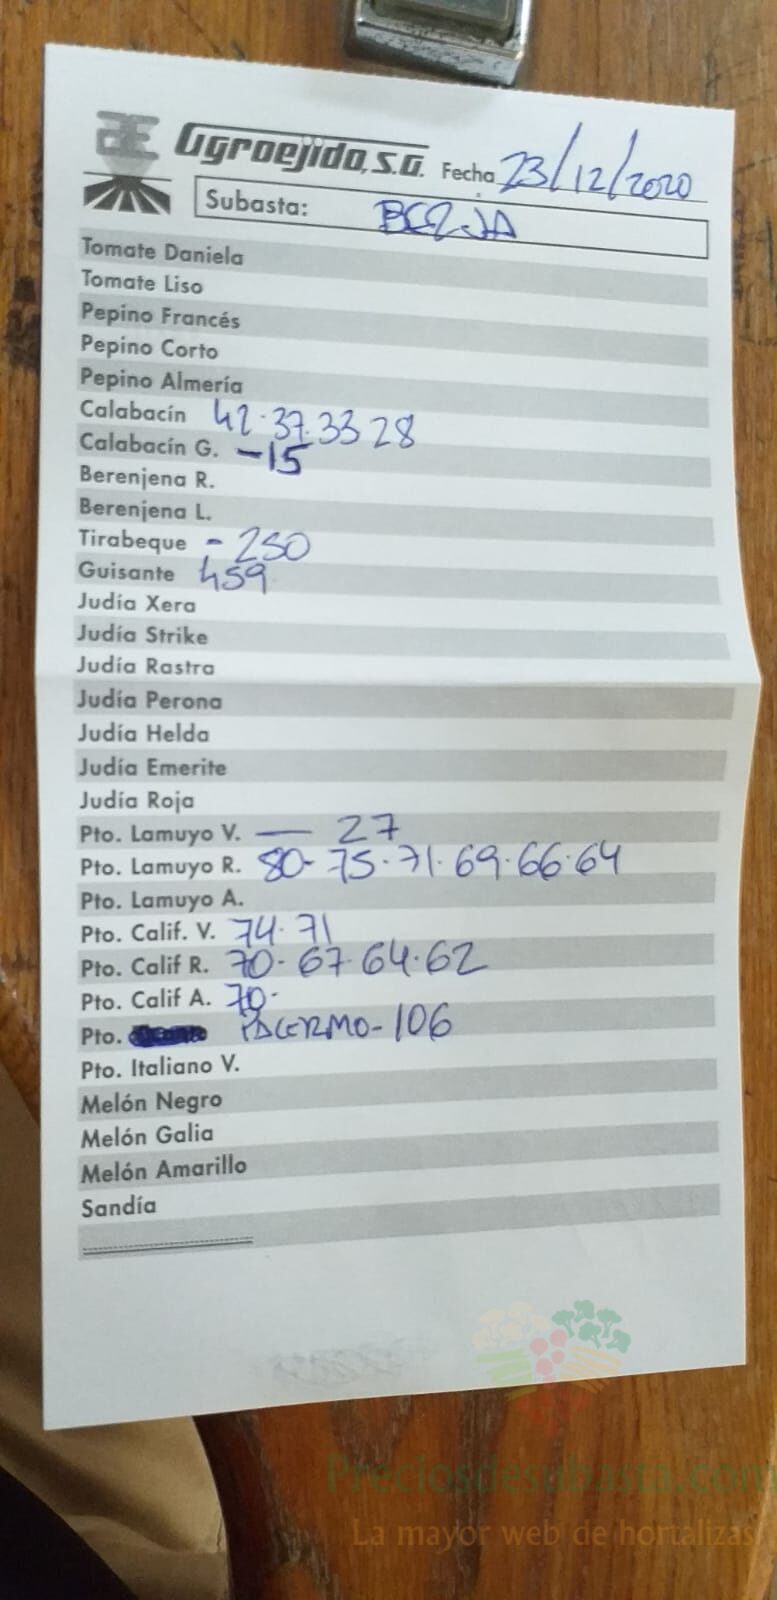 Agroejido, S.A. Fecha 23/12/2020
Subasta: BERJA
Tomate Daniela
Tomate Liso
Pepino Francés
Pepino Corto
Pepino Almería
Calabacín 42·37·33 28
Calabacín G. -15
Berenjena R.
Berenjena L.
Tirabeque - 250
Guisante 459
Judía Xera
Judía Strike
Judía Rastra
Judía Perona
Judía Helda
Judía Emerite
Judía Roja
Pto. Lamuyo V. — 27
Pto. Lamuyo R. 80-75·71·69·66·64
Pto. Lamuyo A.
Pto. Calif. V. 74·71
Pto. Calif R. 70-67·64·62
Pto. Calif A. 70-
Pto. PALERMO-106
Pto. Italiano V.
Melón Negro
Melón Galia
Melón Amarillo
Sandía
Preciosdesubasta.com
La mayor web de hortalizas